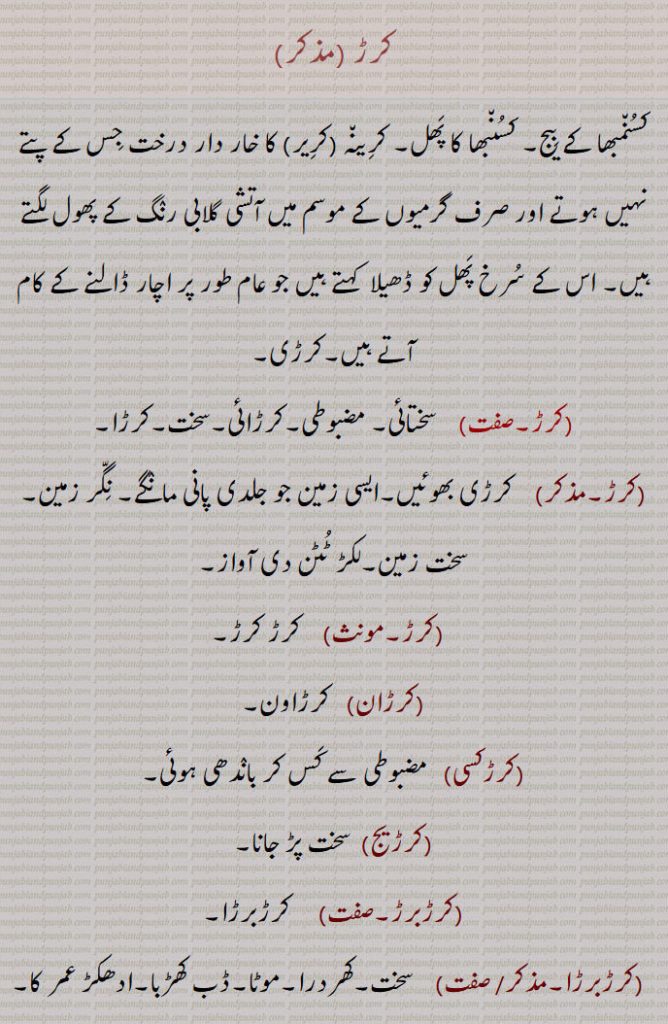 کرڑ (مذکر)
کسُنّمبھا کے بیج۔ کسُنّبھا کا پَھل۔ کرِینہّ (کرِیر) کا خار دار درخت جِس کے پتے
نہیں ہوتے اور صرف گرمیوں کے موسم میں آتشی گلابی رنگ کے پھول لگتے
ہیں۔ اس کے سُرخ پَھل کو ڈھیلا کہتے ہیں جو عام طور پر اچار ڈالنے کے کام
آتے ہیں۔کرڑی۔
(کرڑ۔صفت) سختائی۔ مضبوطی۔کرڑائی۔سخت۔کرڑا۔
(کرڑ۔مذکر) کرڑی بھوئیں۔ایسی زمین جو جلدی پانی مانگے۔ نِگّر زمین۔
سخت زمین۔لکڑ ٹُٹن دی آواز۔
(کرڑ۔مونث) کرڑ کرڑ۔
(کرڑان) کرڑاون۔
(کرڑکسی) مضبوطی سے کَس کر باندھی ہوئی۔
(کرڑیج) سخت پڑ جانا۔
(کرڑبرڑ۔صفت) کرڑبرڑا۔
(کرڑبرڑا۔مذکر/ صفت) سخت۔کھردرا۔موٹا۔ڈب کھڑبا۔ادھکڑ عمر کا۔